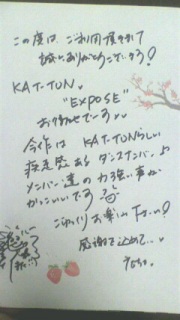 この度は、ご利用頂きまして
誠にありがとうございます!
KAT-TUN
"EXPOSE"
お待たせでーす
今作は KAT-TUNらしい
疾走感ある ダンスナンバー♪
メンバー達の力強い声が
かっこいいです
ごゆっくりお楽しみ下さい!
感謝を込めて…